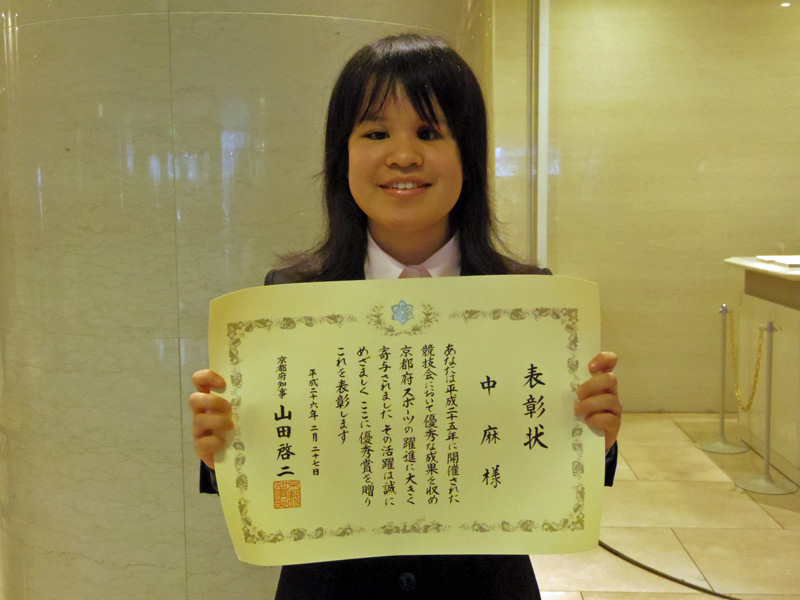 表彰状
中 麻 様
あなたは平成二十五年に開催された
競技会において優秀な成果を収め
京都府スポーツの躍進に大きく
寄与されました その活躍は誠に
めざましく ここに優秀賞を贈り
これを表彰します
平成二十六年 二月 二十七日
京都府知事 山田啓二